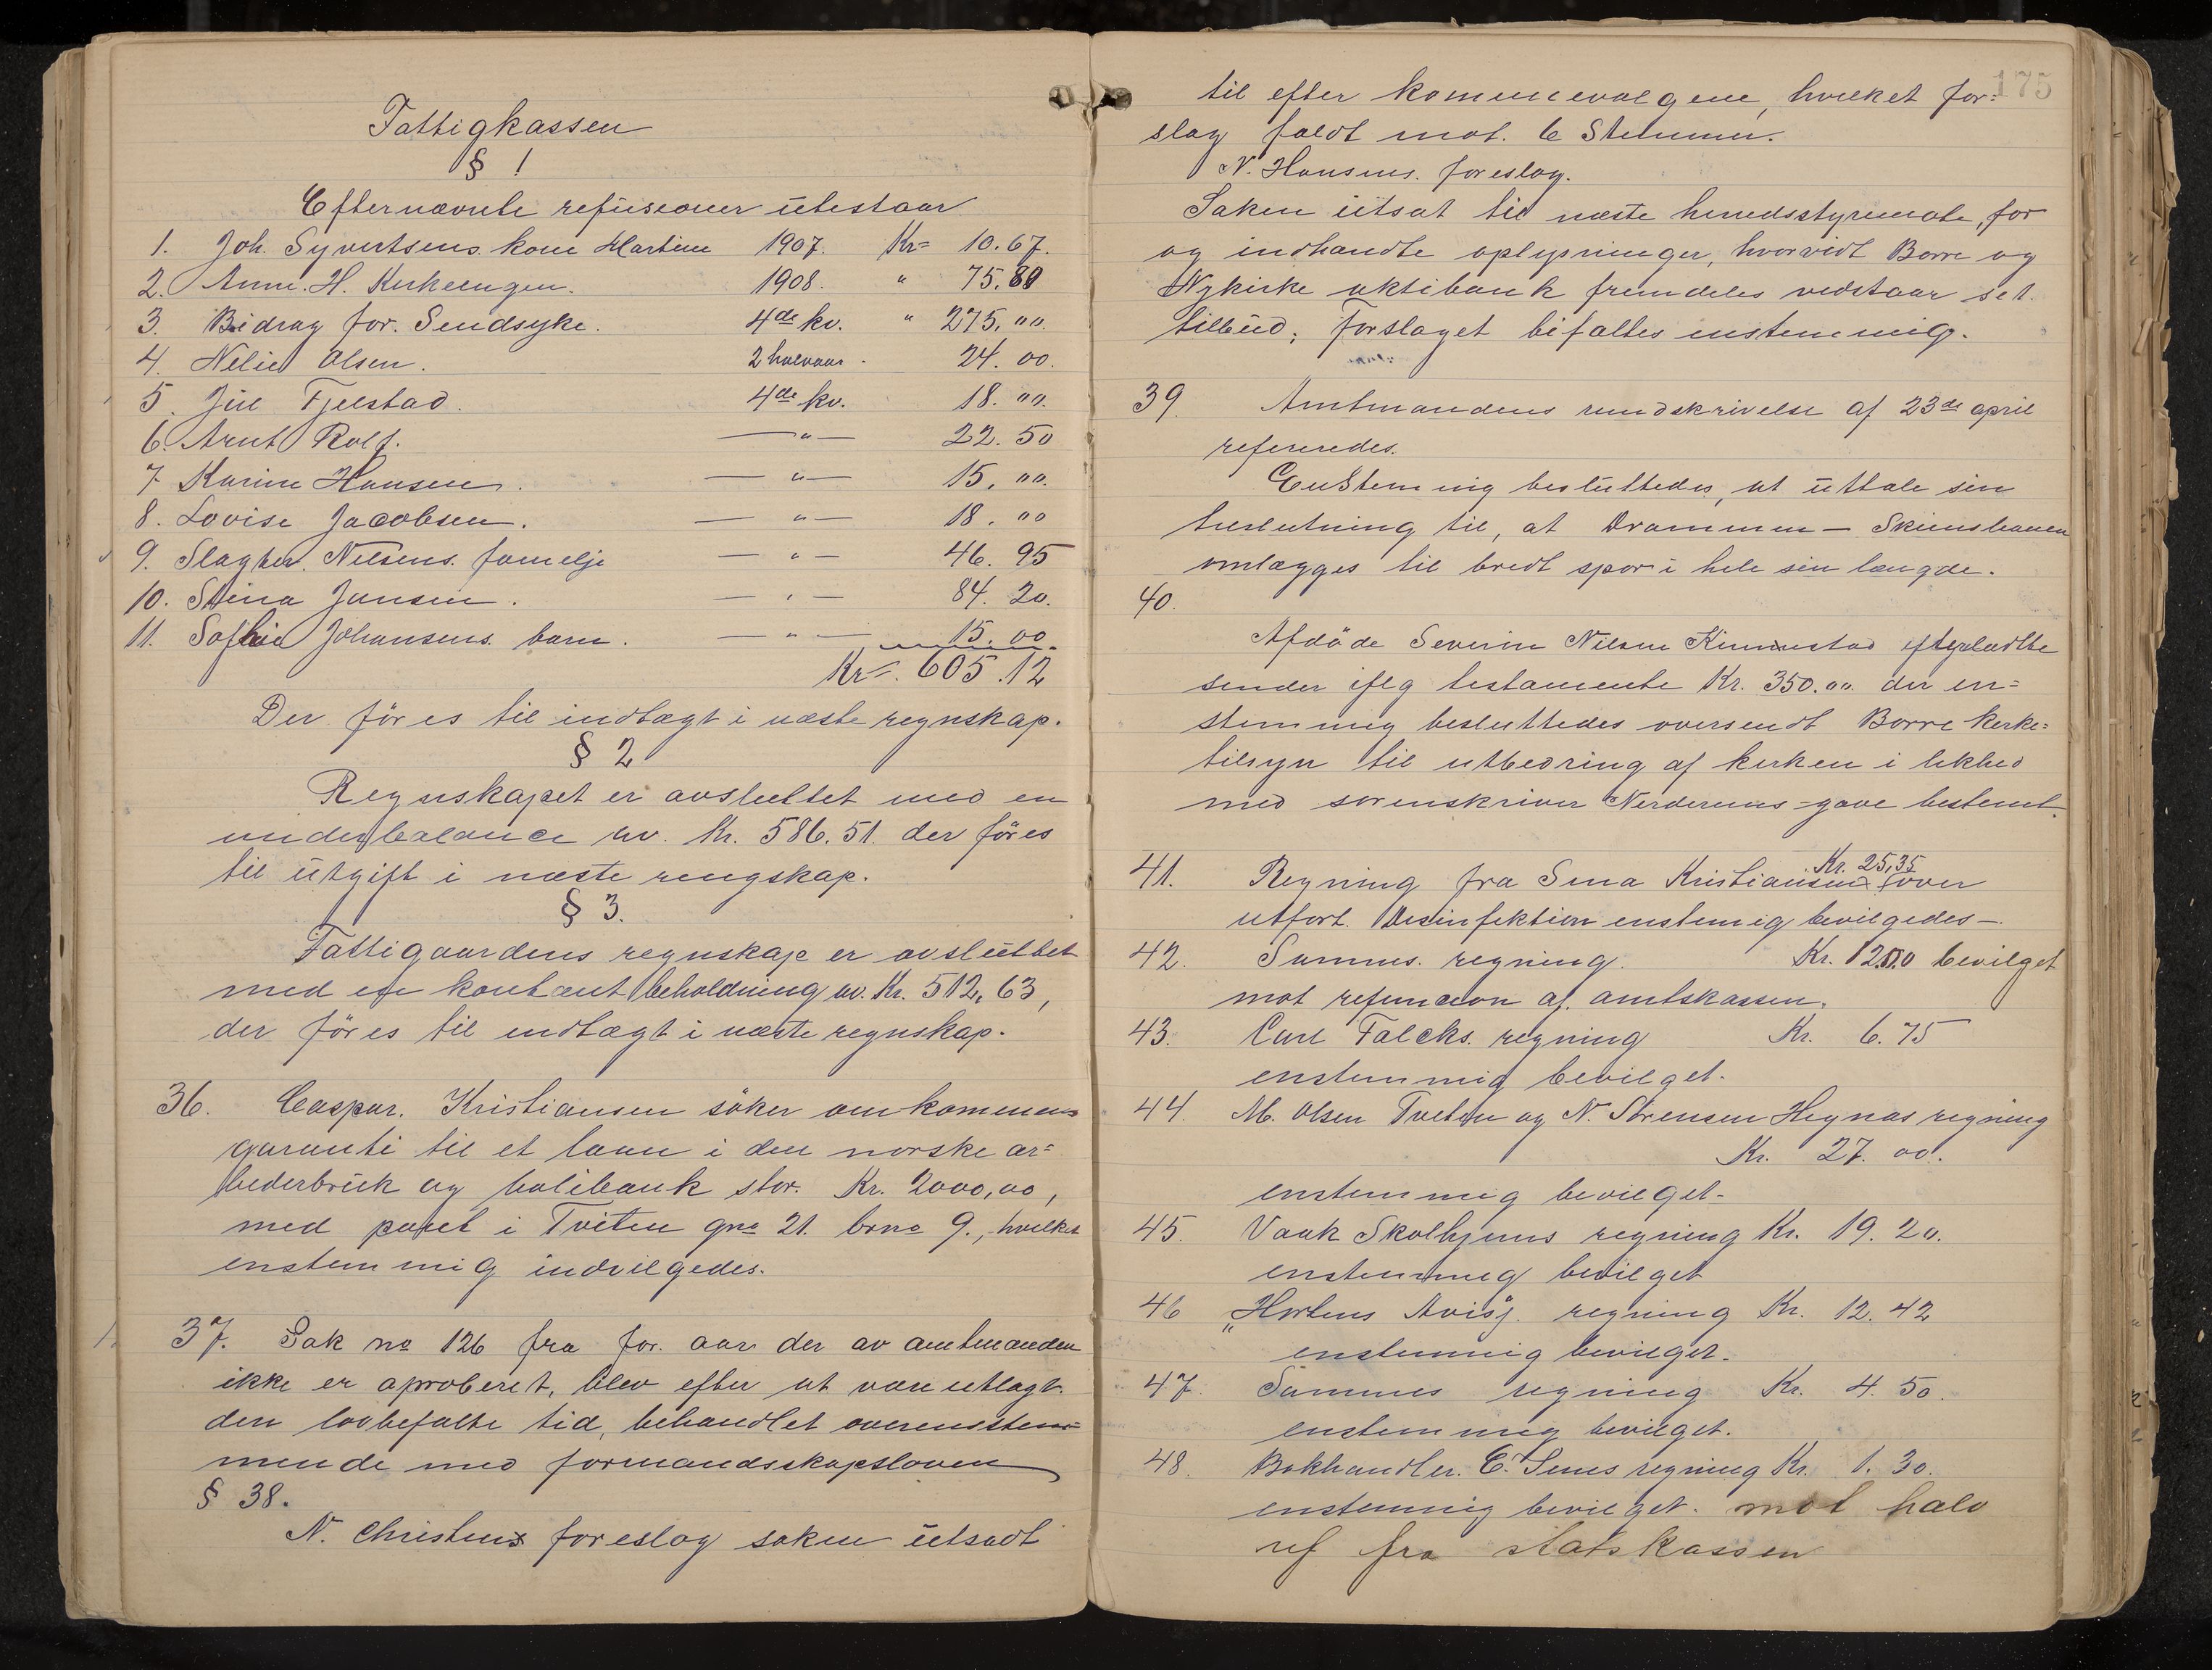 Fattigkassen
§ 1
Efternævnte refusioner utestaar
1. Joh. Syvertsens. kone Martine 1907. Kr= 10.67.
2. Anne. H. Kirkeengen. 1908. " 75.80
3. Bidrag for. Sendsyke. 4de kv. " 275,00.
4. Nelie Olsen. 2 halvaar. 24.00.
5. Jul Fjelstad. 4de kv. 18.00.
6. Arnt Rolf. —"— 22.50
7 Karine Hansen. —"— 15.00.
8. Lovise Jacobsen. —"— 18.00
9. Slagter. Nielsens. familje —"— 46.95
10. Stina Jansen. —"— 84.20.
11. Sofhie Johansens. barn. —"— 15.00
Kr=. 605.12
Der föres til indtægt i næste regnskap.
§ 2
Regnskapet er avsluttet med en
underbalance av. Kr. 586.51. der föres
til utgift i næste rengskap.
§ 3.
Fattigaardens regnskap er avsluttet
med en kontant beholdning av. Kr. 512,63,
der föres til indtægt i næste regnskap.
36. Caspar. Kristiansen söker om kommunens
garanti til et laan i den norske ar=
beiderbruk og bolibank stor. Kr. 2000,00,
med pant i Tviten gno 21. brno 9., hvilket
enstemmig indvilgedes.
37. Sak no 126 fra for. aar der av amtmanden
ikke er aproberet, blev efter at vare utlagt.
den lovbefalte tid, behandlet overensstem=
mende med formandsskapsloven
§ 38.
N. Christens foreslog saken utsadt
175
til efter kommunevalgene, hvilket for=
slag faldt mot. 6 Stemmer.
N. Hansens. foreslog.
Saken utsat til næste herredsstyremøte, for
og indhandte oplysninger, hvorvidt Borre og
Nykirke aktibank fremdeles vedstaar set.
tilbud; forslaget bifaltes enstemmig.
39. Amtmandens rundskrivelse af 23de april
refereredes.
Enstemmig besluttedes, at uttale sin
tilslutning til, at Drammen — Skiensbanen
omlægges til bredt spor i hele sin længde.
40.
Afdöde Severin Nilsen Kinnestad efterladtte
sender iflg testamente Kr. 350.00. der en=
stemmig besluttedes oversendt Borre kirke=
tilsyn til utbedring af kirken i likhed
med sorenskriver Nerderums=gave bestemt.
41. Regning fra Sina Kristiansen Kr. 25,35 over
utfört. Desinfektion enstemig bevilgedes—
42. Sammes. regning. Kr. 12.00 bevilget
mot refunsion af. amtskassen.
43. Carl Falcks. regning Kr. 6.75
enstemmig bevilget.
44. M. Olsen Tveten og N. Sörensen Hegnas regning
Kr. 27.00.
enstemmig bevilget.
45. Vaak Skolhjems regning Kr. 19.20.
enstemmeg bevilget
46 „Hortens Avis". regning Kr. 12.42
enstemmig bevilget.
47. Sammes regning Kr. 4.50.
enstemmig bevilget.
48. Bokhandler. C. Sems regning Kr. 1.30.
enstemmig bevilget. mot halv
ref fra statskassen